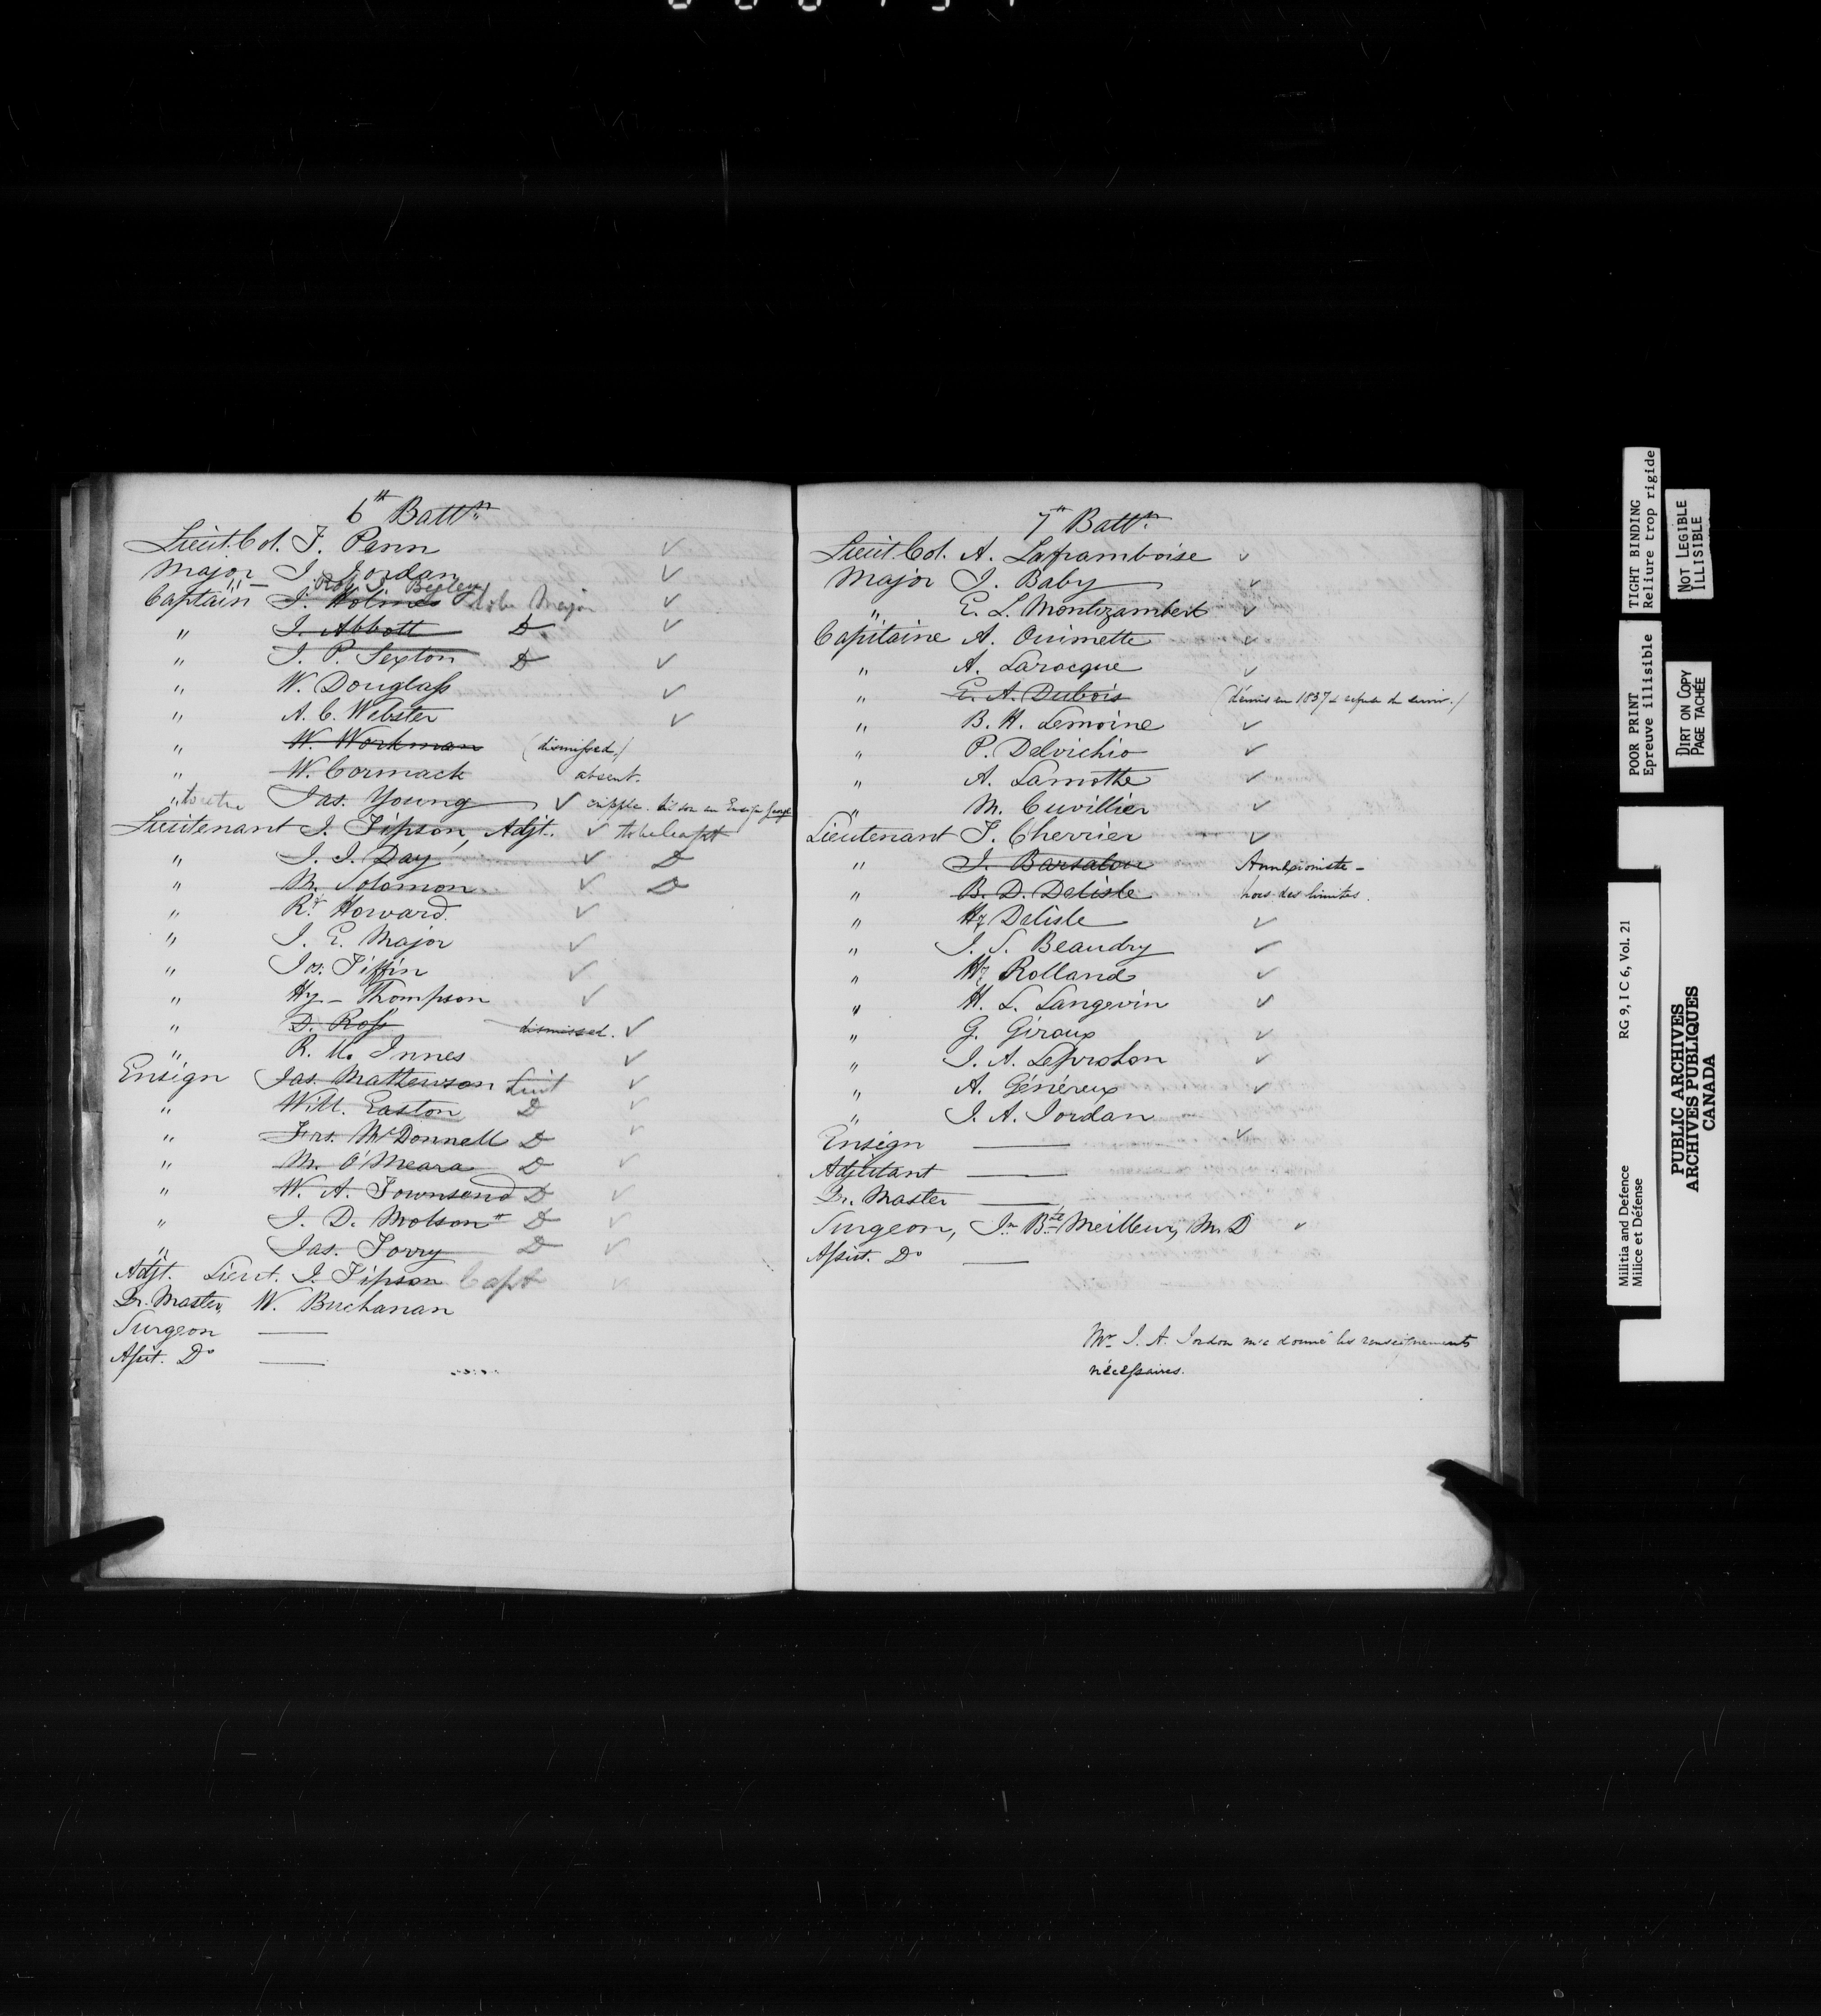 6th Battn
Lieut. Col. J. Penn ✓
Major J. Jordan ✓
" Robt. J. Begley
Captain J. Holmes to be Major ✓
" J. Abbott D ✓
" J. P. Sexton D ✓
" W. Douglass ✓
" A. C. Webster ✓
" W. Workman (dismissed)
" W. Cormack absent.
" Jas. Young ✓ cripple.
Lieutenant J. Tipson, Adjt. ✓ to be Capt
" J. J. Day ✓ D
" M. Solomon ✓ D
" Rd. Howard. ✓
" J. E. Major ✓
" Jos. Tiffin ✓
" Hy. Thompson ✓
" D. Ross dismissed. ✓
" R. Mc Innes ✓
Ensign Jas. Mathewson Lieut ✓
" Will. Easton D ✓
" Frs. McDonnell D ✓
" M. O'Meara D ✓
" W. A. Townsend D ✓
" J. D. Molson D ✓
" Jas. Torry D ✓
Adjt. Lieut. J. Tipson Capt ✓
Qr. Master, W. Buchanan
Surgeon —
Assist. Do —
7th Battn.
Lieut. Col. A. Laframboise ✓
Major J. Baby ✓
" E. L. Montizambert ✓
Capitaine A. Ouimette ✓
" A. Larocque ✓
" E. A. Dubois (démis en 1837 & refusé de servir.)
" B. H. Lemoine ✓
" P. Delvichio ✓
" A. Lamothe ✓
" M. Cuvillier ✓
Lieutenant J. Cherrier ✓
" J. Barsalou Annexioniste -
" B. D. Delisle hors des limites.
" Hy Delisle ✓
" J. S. Beaudry ✓
" Hy Rolland ✓
" H. L. Langevin ✓
" G. Giroux ✓
" J. A. Leprohon ✓
" A. Généreux ✓
" J. A. Jordan ✓
Ensign —
Adjutant —
Qr. Master —
Surgeon, Jn. Bte. Meilleur, M. D ✓
Assist. Do —
Mr. J. A. Jordan m'a donné les renseignements
nécessaires.
TIGHT BINDING
Reliure trop rigide
NOT LEGIBLE
ILLISIBLE
POOR PRINT
Epreuve illisible
DIRT ON COPY
PAGE TACHÉE
Militia and Defence
Milice et Défense
RG 9, I C 6, Vol. 21
PUBLIC ARCHIVES
ARCHIVES PUBLIQUES
CANADA